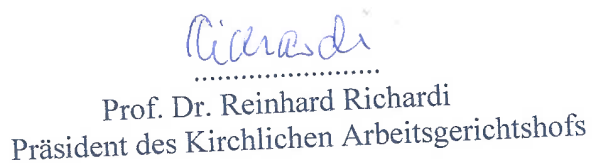 Richardi
........................
Prof. Dr. Reinhard Richardi
Präsident des Kirchlichen Arbeitsgerichtshofs